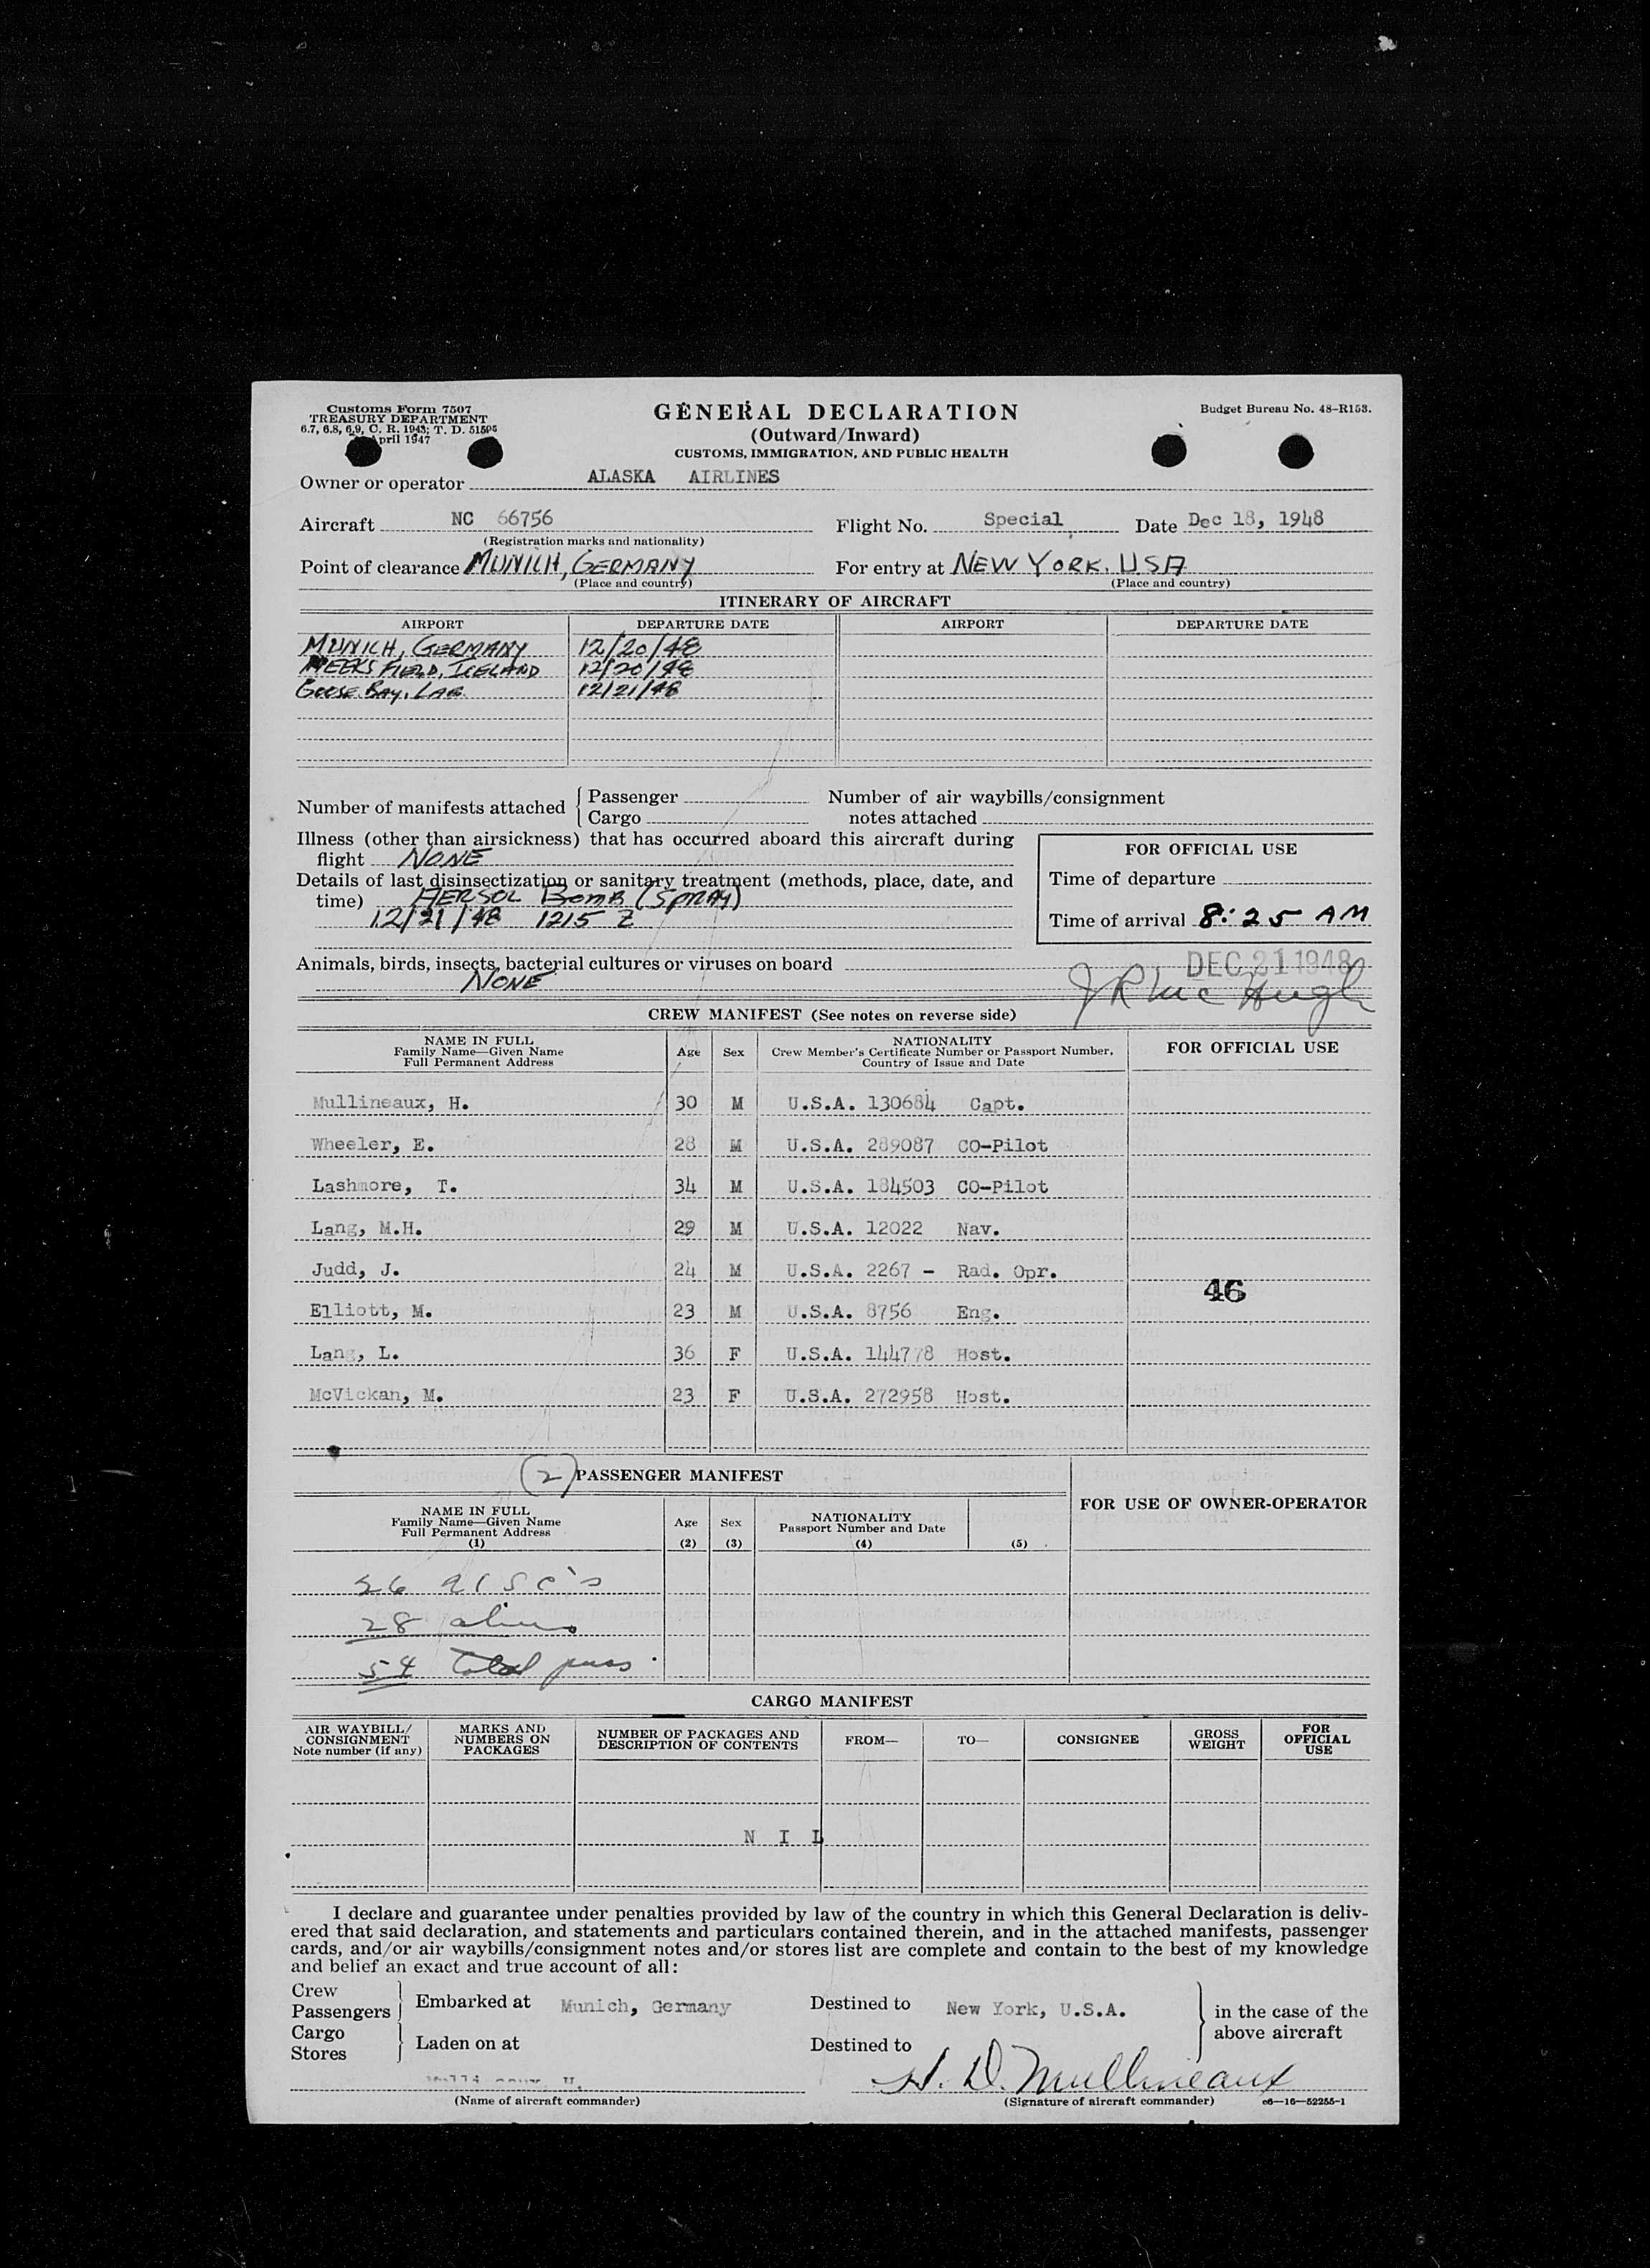 Customs Form 7507
TREASURY DEPARTMENT
6.7, 6.8, 6.9, C. R. 1943; T. D. 51595
April 1947
GENERAL DECLARATION
(Outward/Inward)
CUSTOMS, IMMIGRATION, AND PUBLIC HEALTH
Budget Bureau No. 48-R153.
Owner or operator ALASKA AIRLINES
Aircraft NC 66756 Flight No. Special Date Dec 18, 1948
(Registration marks and nationality)
Point of clearance MUNICH, GERMANY For entry at NEW YORK. USA
(Place and country) (Place and country)
ITINERARY OF AIRCRAFT
AIRPORT DEPARTURE DATE AIRPORT DEPARTURE DATE
MUNICH, GERMANY 12/20/48
MEEKS FIELD, ICELAND 12/20/48
GOOSE BAY, LAB. 12/21/48
Number of manifests attached Passenger Number of air waybills/consignment
Cargo notes attached
Illness (other than airsickness) that has occurred aboard this aircraft during
flight NONE
FOR OFFICIAL USE
Details of last disinsectization or sanitary treatment (methods, place, date, and
time) AERSOL BOMB (SPRAY)
12/21/48 1215 Z
Time of departure
Time of arrival 8:25 AM
Animals, birds, insects, bacterial cultures or viruses on board
NONE
DEC 21 1948
J R McHugh
CREW MANIFEST (See notes on reverse side)
NAME IN FULL
Family Name—Given Name
Full Permanent Address
Age Sex
NATIONALITY
Crew Member's Certificate Number or Passport Number,
Country of Issue and Date
FOR OFFICIAL USE
Mullineaux, H. 30 M U.S.A. 130684 Capt.
Wheeler, E. 28 M U.S.A. 289087 CO-Pilot
Lashmore, T. 34 M U.S.A. 184503 CO-Pilot
Lang, M.H. 29 M U.S.A. 12022 Nav.
Judd, J. 24 M U.S.A. 2267 - Rad. Opr.
46
Elliott, M. 23 M U.S.A. 8756 Eng.
Lang, L. 36 F U.S.A. 144778 Host.
McVickan, M. 23 F U.S.A. 272958 Host.
(2) PASSENGER MANIFEST
NAME IN FULL
Family Name—Given Name
Full Permanent Address
(1)
Age
(2)
Sex
(3)
NATIONALITY
Passport Number and Date
(4) (5)
FOR USE OF OWNER-OPERATOR
26
28 aliens
54 Total pass.
CARGO MANIFEST
AIR WAYBILL/
CONSIGNMENT
Note number (if any)
MARKS AND
NUMBERS ON
PACKAGES
NUMBER OF PACKAGES AND
DESCRIPTION OF CONTENTS
FROM— TO— CONSIGNEE
GROSS
WEIGHT
FOR
OFFICIAL
USE
N I L
I declare and guarantee under penalties provided by law of the country in which this General Declaration is deliv-
ered that said declaration, and statements and particulars contained therein, and in the attached manifests, passenger
cards, and/or air waybills/consignment notes and/or stores list are complete and contain to the best of my knowledge
and belief an exact and true account of all:
Crew
Passengers Embarked at Munich, Germany Destined to New York, U.S.A. in the case of the
Cargo above aircraft
Stores Laden on at Destined to
H. D. Mullineaux
(Name of aircraft commander) (Signature of aircraft commander) c6—16—52255-1